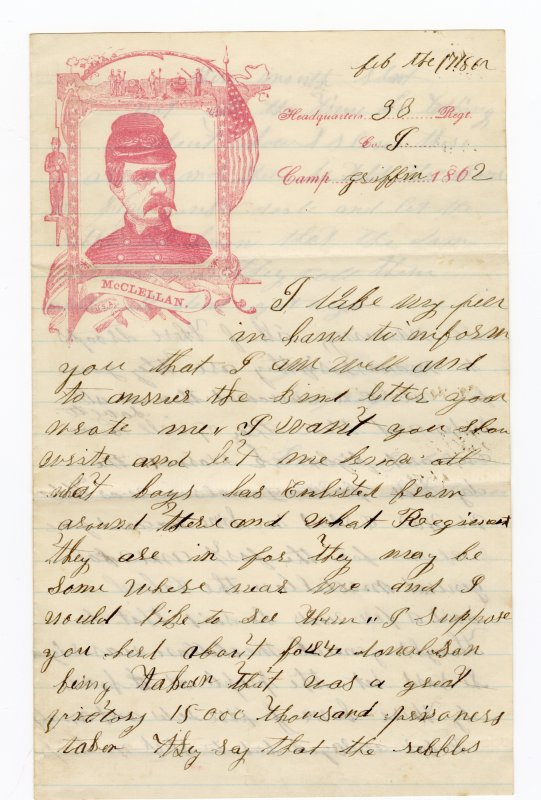 feb the 17 1862
Headquarters 30 Regt.
Co. I
Camp griffin 1862
McCLELLAN.
I take my pen
in hand to inform
you that I am well and
to answer the kind letter you
wrote me I want you
write and let me know all
what boys has Enlisted from
around there and what Regiment
they are in for they may be
some where near me and I
would like to see them I suppose
you herd about forte donalson
being taken that was a great
victory 15000 thousand prisoners
taken they say that the rebbls